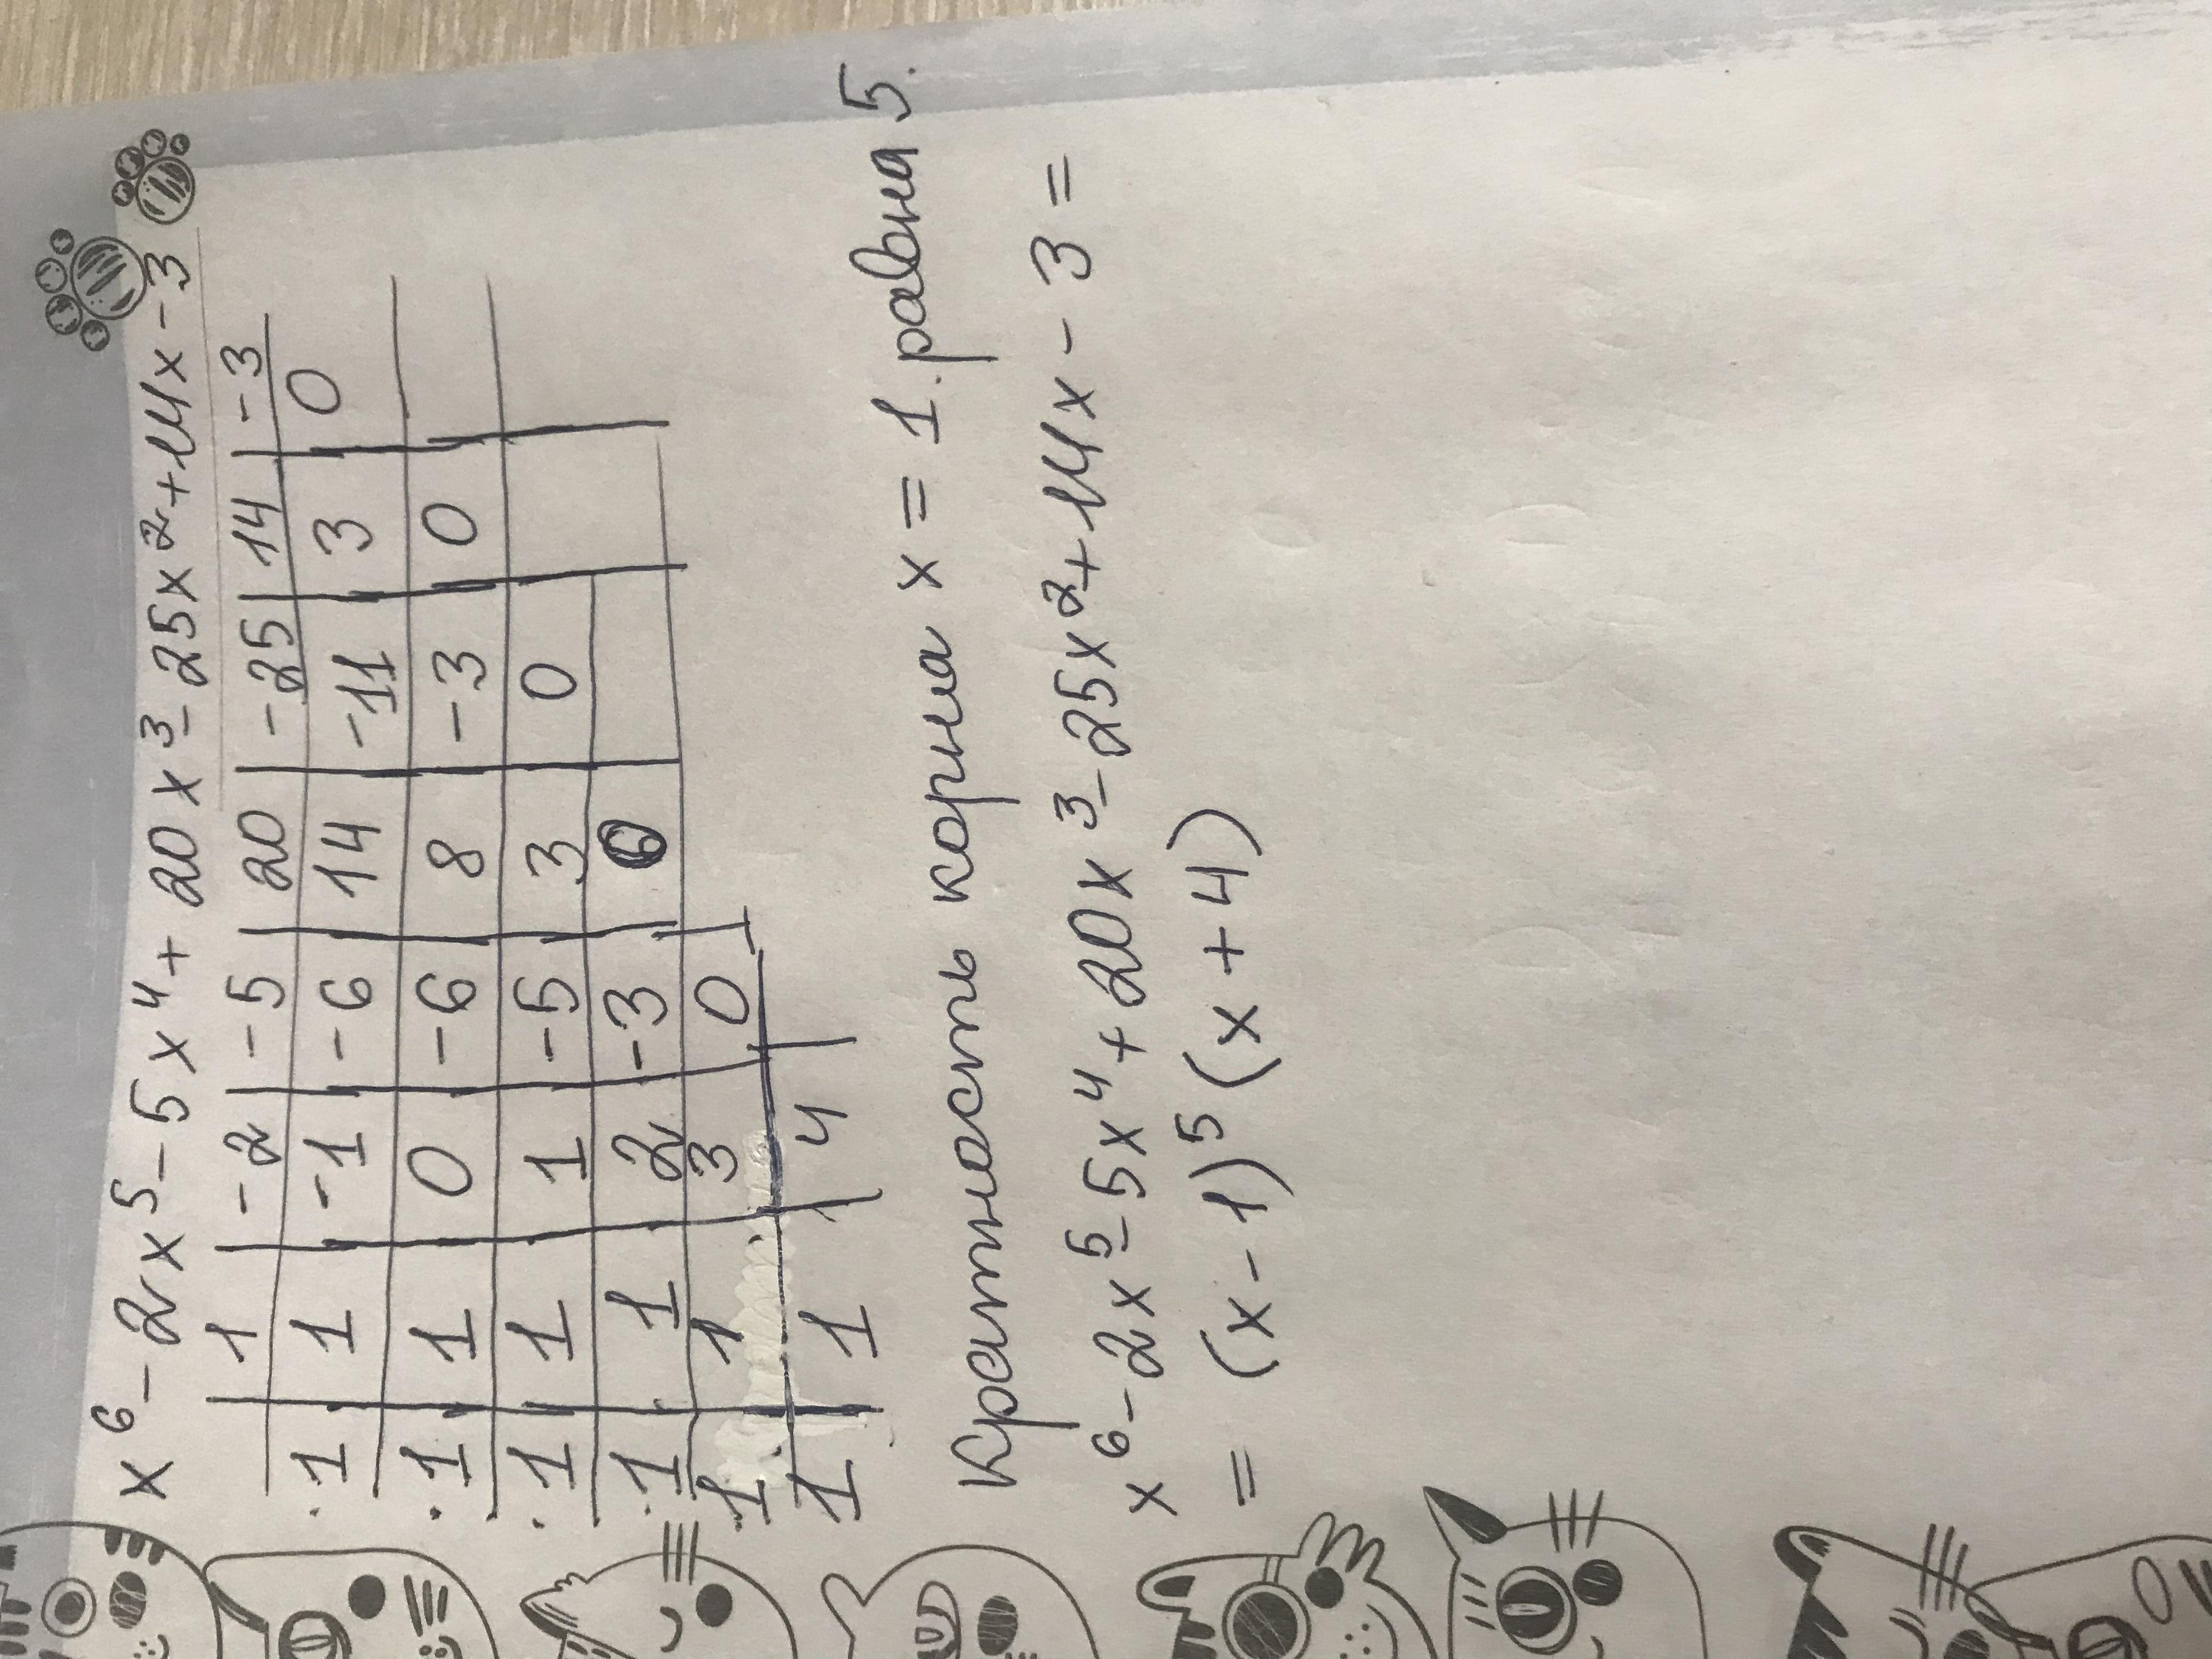 x⁶ - 2x⁵ - 5x⁴ + 20x³ - 25x² + 14x - 3
1 -2 -5 20 -25 14 -3
1 1 -1 -6 14 -11 3 0
1 1 0 -6 8 -3 0
1 1 1 -5 3 0
1 1 2 -3 0
1 1 3 0
1 1 4
Кратность корна x = 1 равна 5.
x⁶ - 2x⁵ - 5x⁴ + 20x³ - 25x² + 14x - 3 =
= (x - 1)⁵ (x + 4)